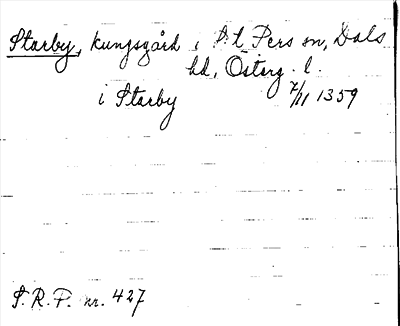 Starby, kungsgård i S:t Pers sn, Dals
hd, Österg. l.
i Starby 7/11 1359
S.R.P. nr. 427